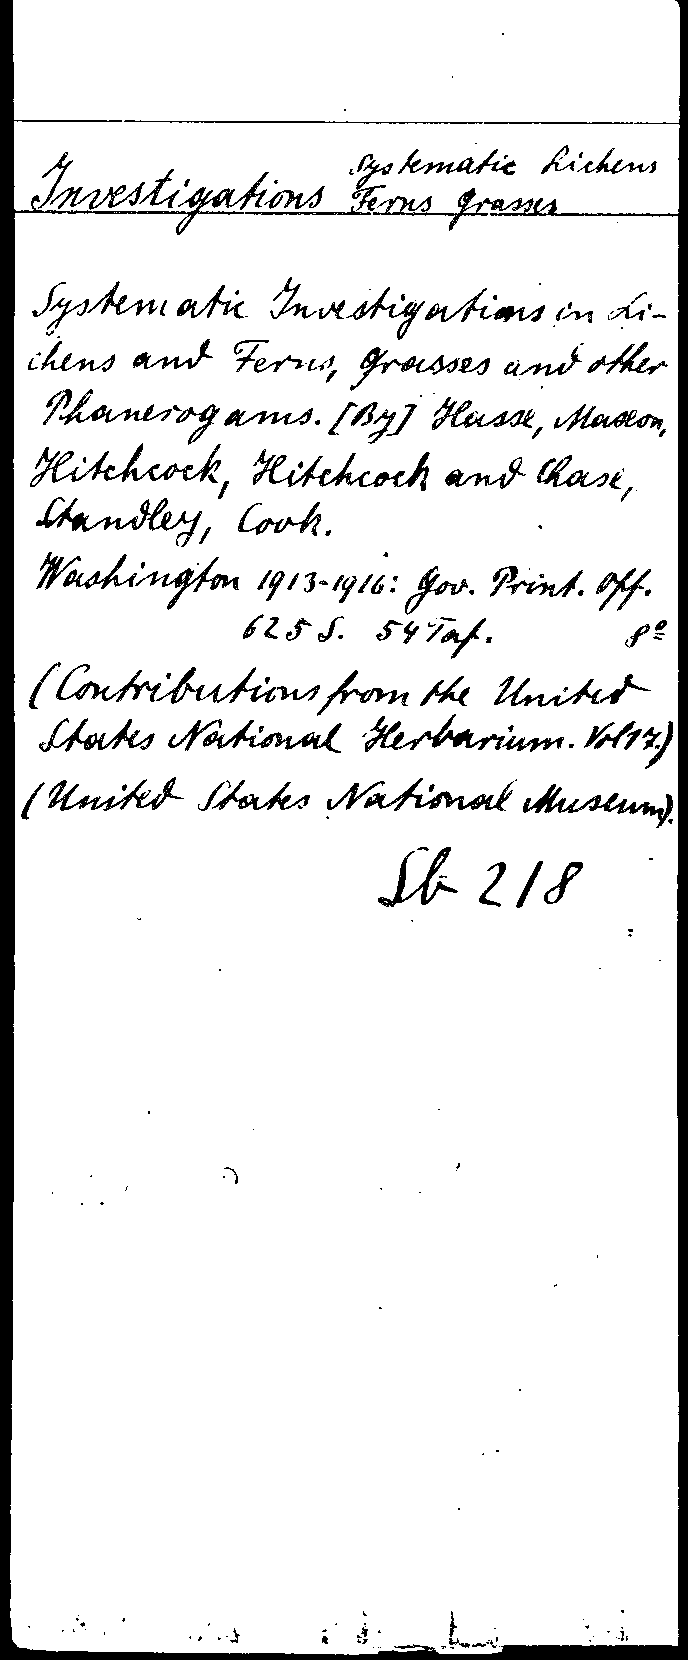 Systematic Lichens
Investigations Ferns Grasses
Systematic Investigations in Li-
chens and Ferns, Grasses and other
Phanerogams. [By] Hasse, Maxon,
Hitchcock, Hitchcock and Chase,
Standley, Cook.
Washington 1913-1916: Gov. Print. Off.
625 S. 54 Taf. 8º
(Contributions from the United
States National Herbarium. Vol 17.)
(United States National Museum).
Sb 218